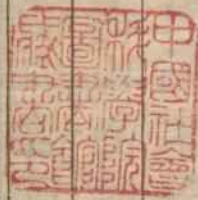 中國社會
科學院
圖書館
藏書之印